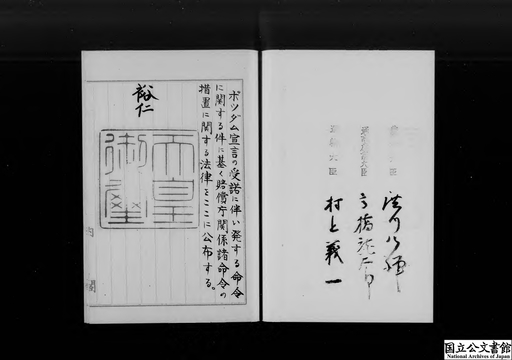 ポツダム宣言の受諾に伴い発する命令
に関する件に基く賠償庁関係諸命令の
措置に関する法律をここに公布する。
裕仁
天皇
御璽
内
閣
大臣
大臣
村上義一
国立公文書館
National Archives of Japan